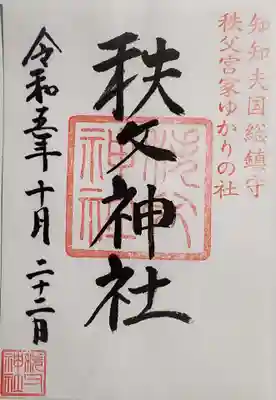 知知夫国総鎮守
秩父宮家ゆかりの社
秩父神社
令和五年十月二十二日
秩父神社
秩父神社